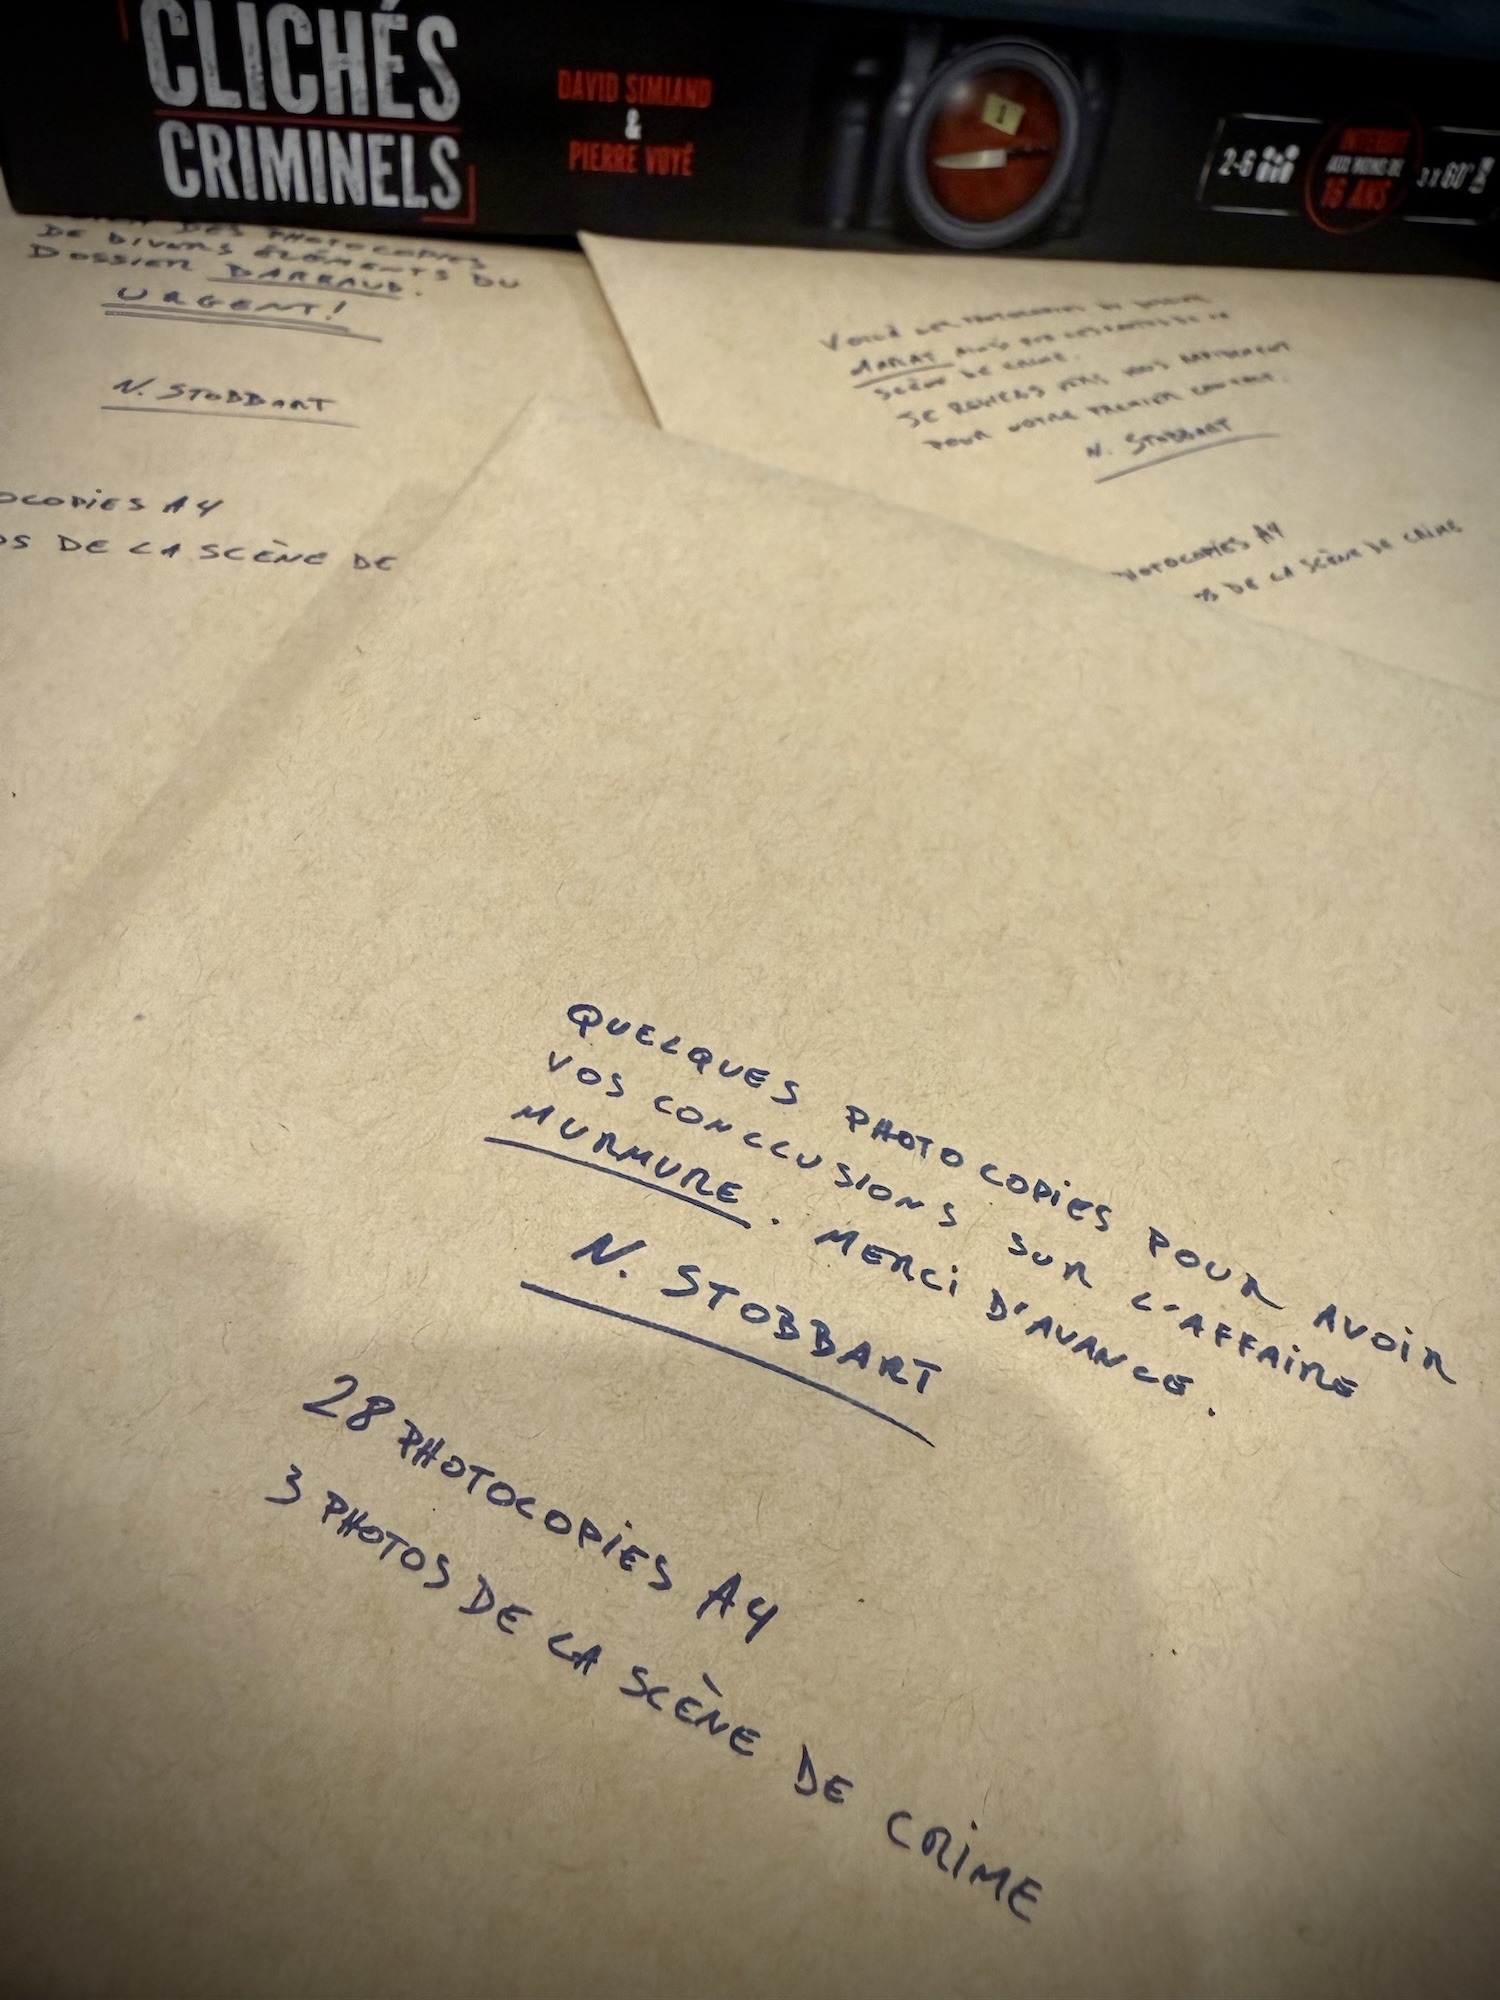 CLICHÉS
CRIMINELS
DAVID SIMIAND
&
PIERRE VOYÉ
1
2-6
INTERDIT
AUX MOINS DE
16 ANS
3 x 60'
DES PHOTOCOPIES
DE DIVERS ÉLÉMENTS DU
DOSSIER BARRAUD.
URGENT!
N. STOBBART
OCOPIES A4
OS DE LA SCÈNE DE
VOICI LES PHOTOCOPIES DU DOSSIER
MARAT AINSI QUE LES PHOTOS DE LA
SCÈNE DE CRIME.
JE REVIENS VERS VOUS RAPIDEMENT
POUR NOTRE PREMIER CONTACT.
N. STOBBART
HOTOCOPIES A4
OS DE LA SCÈNE DE CRIME
QUELQUES PHOTOCOPIES POUR AVOIR
VOS CONCLUSIONS SUR L'AFFAIRE
MURMURE. MERCI D'AVANCE.
N. STOBBART
28 PHOTOCOPIES A4
3 PHOTOS DE LA SCÈNE DE CRIME